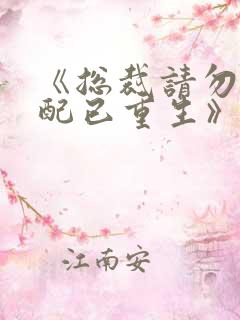 《总裁請勿
配已重生》
江南安